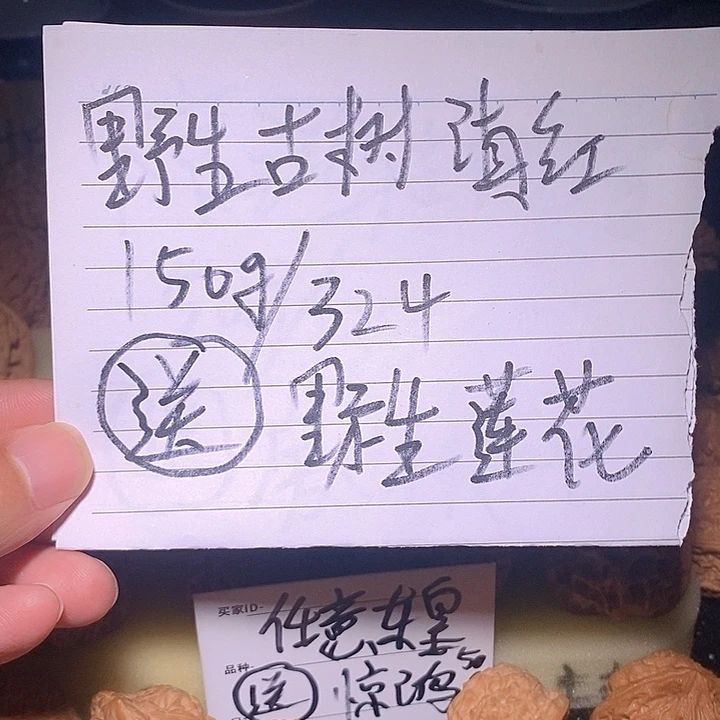 野生古树滇红
150g/324
送 野生莲花
买家ID-任意东皇
品种
送 惊鸿50